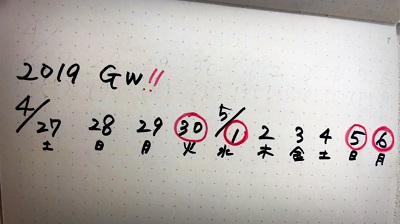 2019 GW!!
4/27 28 29 30 5/1 2 3 4 5 6
土 日 月 火 水 木 金 土 日 月